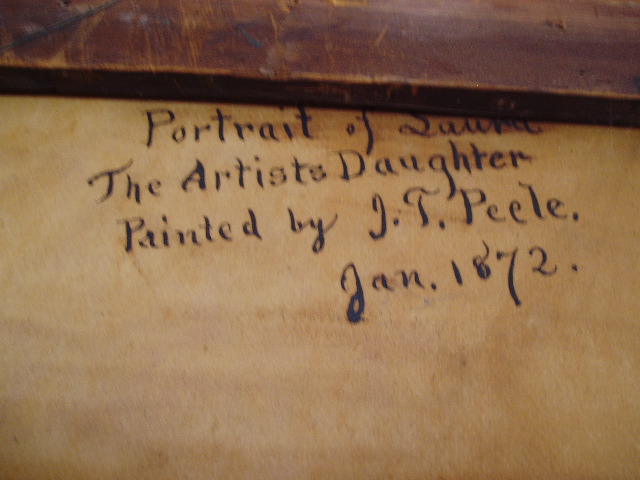 Portrait of Laura
The Artists Daughter
Painted by J.T. Peele.
Jan. 1872.